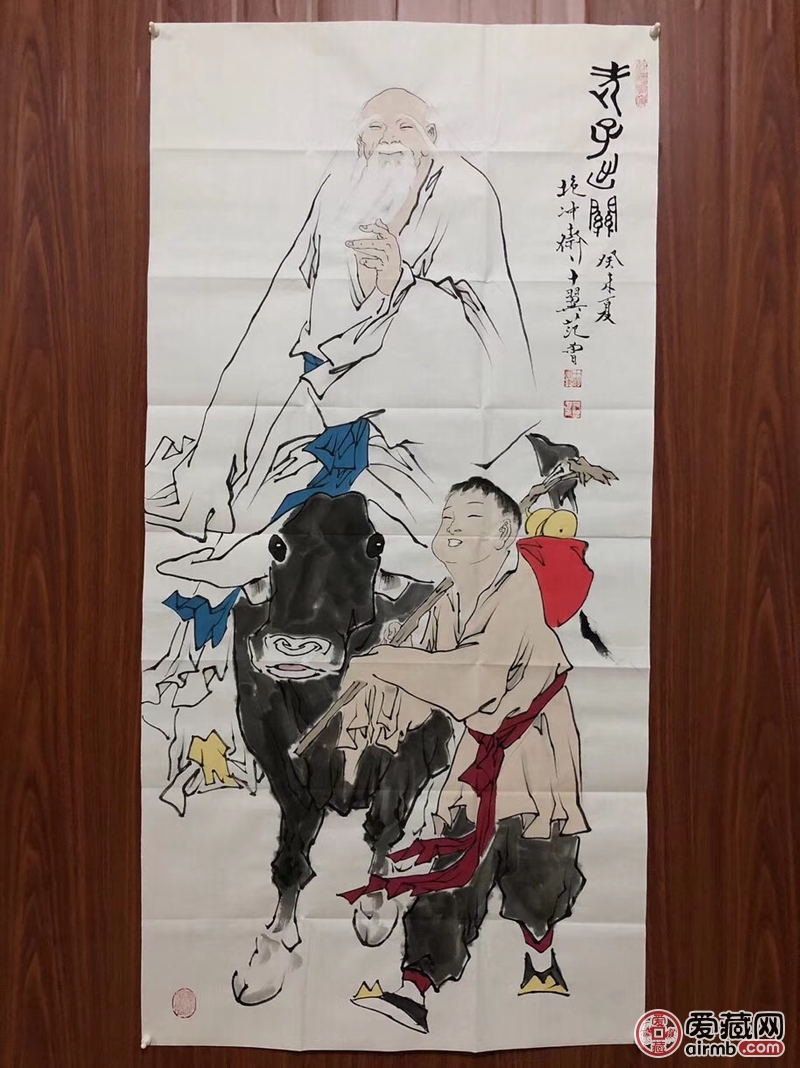 老子出關
癸未夏
抱冲斋十翼范曾
爱藏网
airmb.com